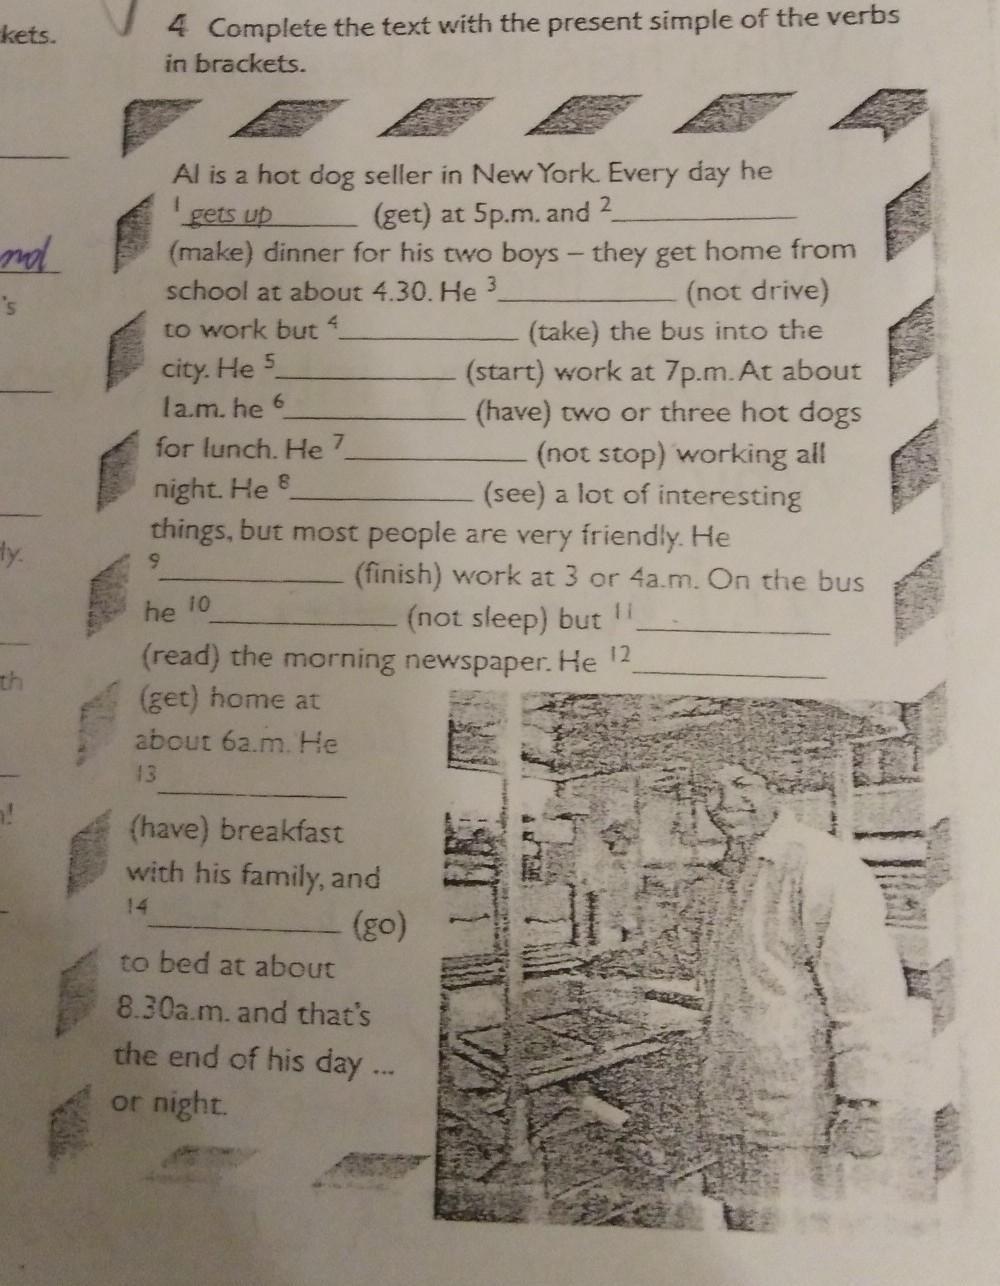 kets.
4 Complete the text with the present simple of the verbs
in brackets.
Al is a hot dog seller in New York. Every day he
1 gets up (get) at 5p.m. and 2____________
(make) dinner for his two boys – they get home from
school at about 4.30. He 3____________ (not drive)
to work but 4____________ (take) the bus into the
city. He 5____________ (start) work at 7p.m. At about
1a.m. he 6____________ (have) two or three hot dogs
for lunch. He 7____________ (not stop) working all
night. He 8____________ (see) a lot of interesting
things, but most people are very friendly. He
9____________ (finish) work at 3 or 4a.m. On the bus
he 10____________ (not sleep) but 11____________
(read) the morning newspaper. He 12____________
(get) home at
about 6a.m. He
13____________
(have) breakfast
with his family, and
14____________ (go)
to bed at about
8.30a.m. and that's
the end of his day ...
or night.
's
ly.
th
!